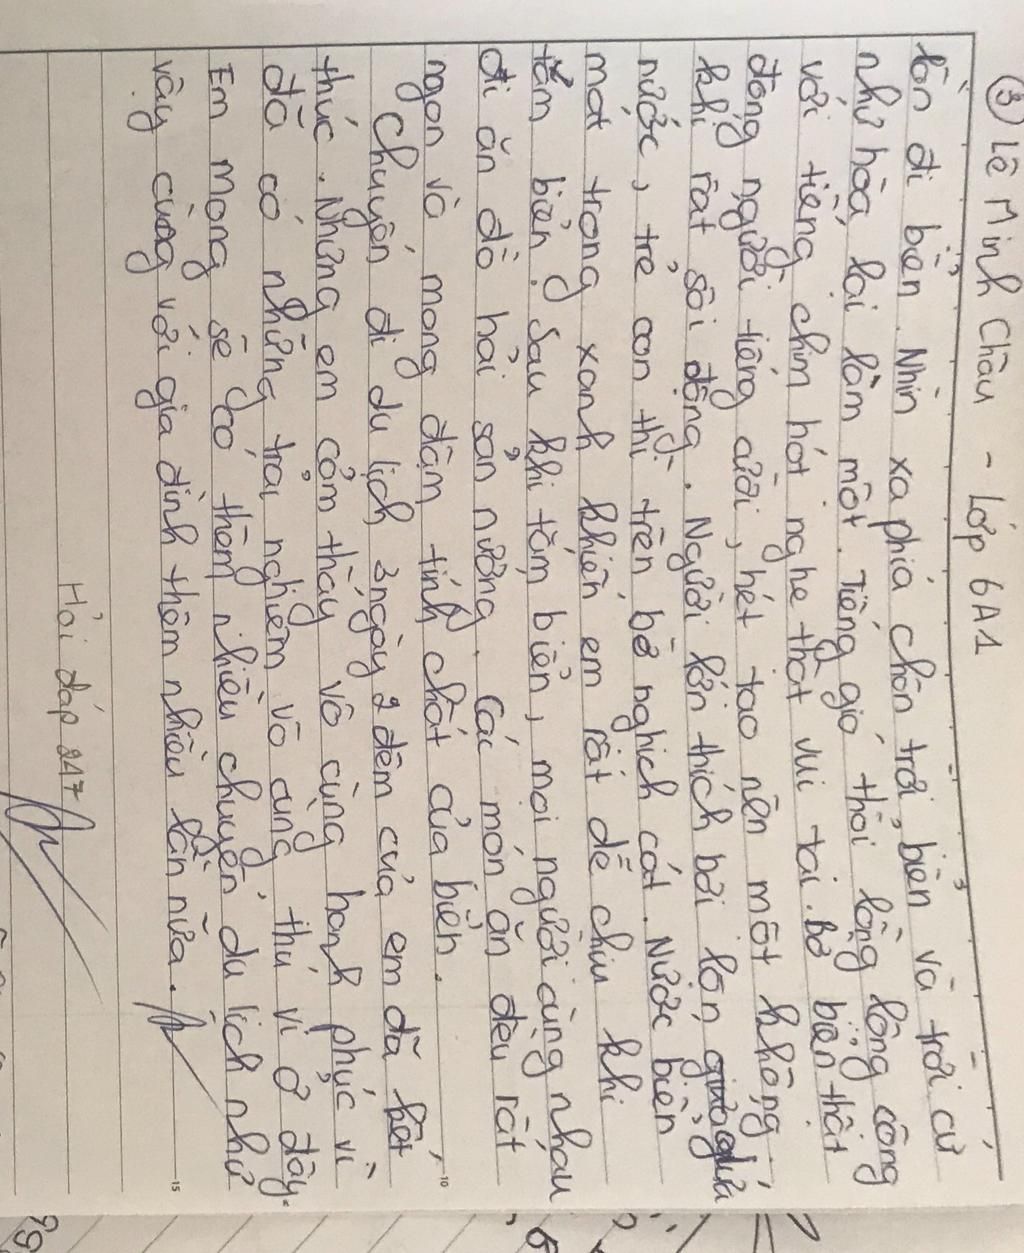 ③ Lê Minh Châu - Lớp 6A1
lớn đi biển. Nhìn xa phía chân trời, biển và trời cứ
như hòa lại làm một. Tiếng gió thổi lồng lộng cộng
với tiếng chim hót nghe thật vui tai. Bờ biển thật
đông người tiếng cười, hét tạo nên một không
khí rất sôi động. Người lớn thích bơi lộn giữa
nước, trẻ con thì trên bờ nghịch cát. Nước biển
mát trong xanh khiến em rất dễ chịu khi
tắm biển. Sau khi tắm biển, mọi người cùng nhau
đi ăn đồ hải sản nướng. Các món ăn đều rất
ngon và mang đậm tính chất của biển.
Chuyến đi du lịch 3 ngày 2 đêm của em đã kết
thúc. Nhưng em cảm thấy vô cùng hạnh phúc vì
đã có những trải nghiệm vô cùng thú vị ở đây.
Em mong sẽ có thêm nhiều chuyến du lịch như
vậy cùng với gia đình thêm nhiều lần nữa.
Hỏi đáp 247
10
15